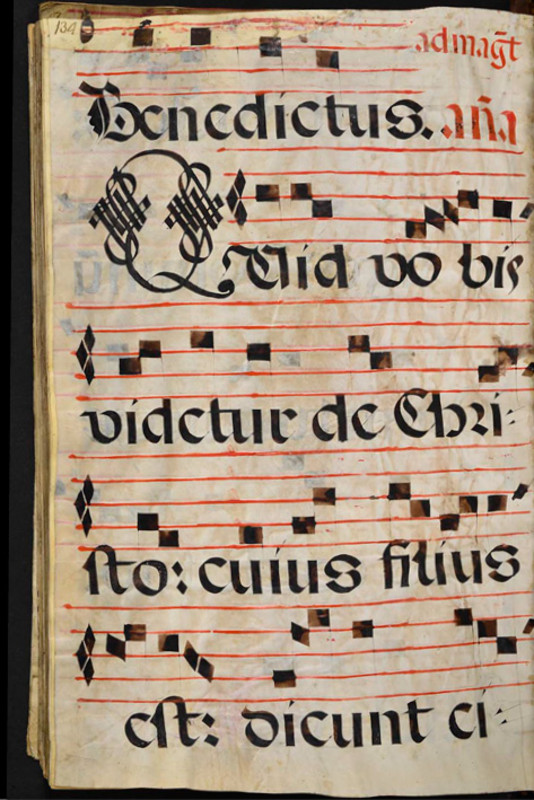 134
ad mag̃t
Benedictus. añа
QUid vo bis
videtur de Chri-
sto: cuius filius
est: dicunt ci-